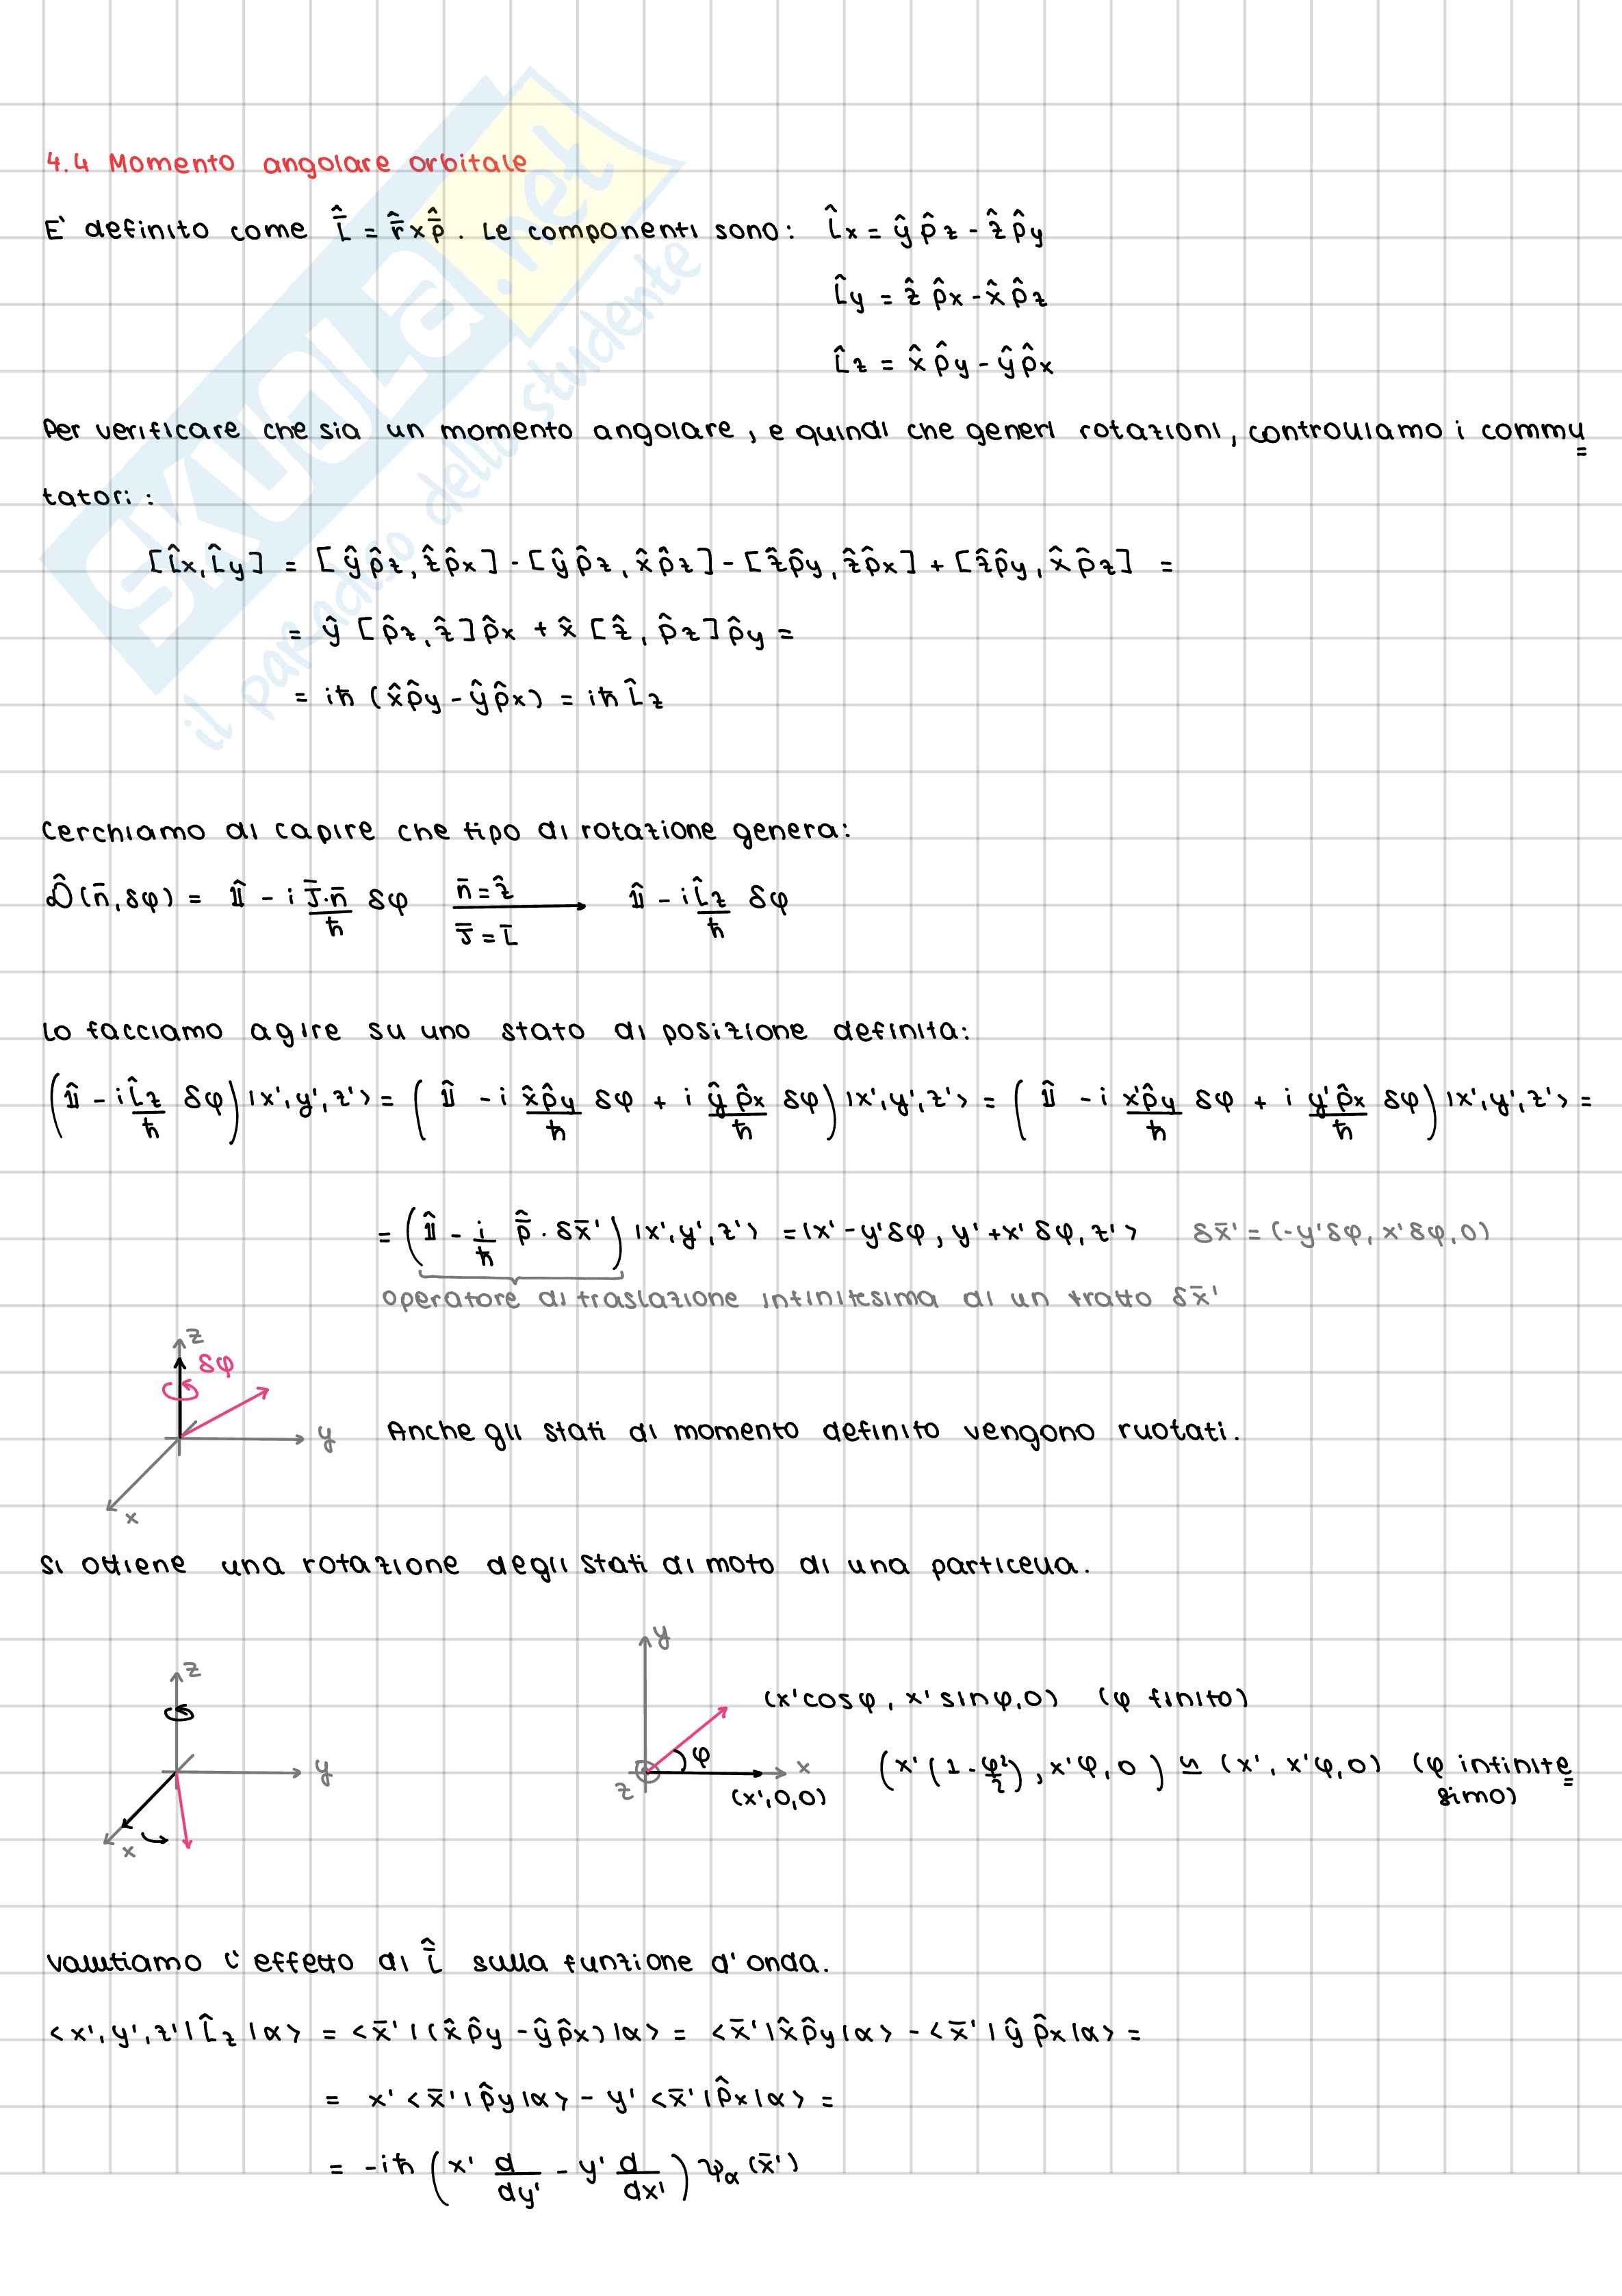 4.4 Momento angolare orbitale
E' definito come L̂̄ = r̂̄ x p̂̄ . Le componenti sono: L̂x = ŷ p̂z - ẑ p̂y
L̂y = ẑ p̂x - x̂ p̂z
L̂z = x̂ p̂y - ŷ p̂x
Per verificare che sia un momento angolare, e quindi che generi rotazioni, controlliamo i commu
tatori :
[L̂x, L̂y] = [ŷp̂z, ẑp̂x] - [ŷp̂z, x̂p̂z] - [ẑp̂y, ẑp̂x] + [ẑp̂y, x̂p̂z] =
= ŷ [p̂z, ẑ] p̂x + x̂ [ẑ, p̂z] p̂y =
= iħ (x̂p̂y - ŷp̂x) = iħ L̂z
Cerchiamo di capire che tipo di rotazione genera:
D̂(n̄, δφ) = 𝟙̂ - i J̄·n̄/ħ δφ n̄ = ẑ J̄ = L̄ → 𝟙̂ - i L̂z/ħ δφ
Lo facciamo agire su uno stato di posizione definita:
(𝟙̂ - i L̂z/ħ δφ) |x', y', z'> = (𝟙̂ - i x̂p̂y/ħ δφ + i ŷp̂x/ħ δφ) |x', y', z'> = (𝟙̂ - i x'p̂y/ħ δφ + i y'p̂x/ħ δφ) |x', y', z'> =
= (𝟙̂ - i/ħ p̂̄ · δx̄') |x', y', z'> = |x' - y'δφ, y' + x'δφ, z'> δx̄' = (-y'δφ, x'δφ, 0)
operatore di traslazione infinitesima di un tratto δx̄'
z
δφ
y
x
Anche gli stati di momento definito vengono ruotati.
Si ottiene una rotazione degli stati di moto di una particella.
z
y
x
y
φ
x
z
(x', 0, 0)
(x'cosφ, x'sinφ, 0) (φ finito)
(x'(1 - φ²/2), x'φ, 0) ≃ (x', x'φ, 0) (φ infinite
simo)
Valutiamo l'effetto di L̂̄ sulla funzione d'onda.
<x', y', z'| L̂z |α> = <x̄'| (x̂p̂y - ŷp̂x) |α> = <x̄'| x̂p̂y |α> - <x̄'| ŷ p̂x |α> =
= x' <x̄'| p̂y |α> - y' <x̄'| p̂x |α> =
= -iħ (x' d/dy' - y' d/dx') ψα (x̄')
SKUOLa.net
il paradiso dello studente